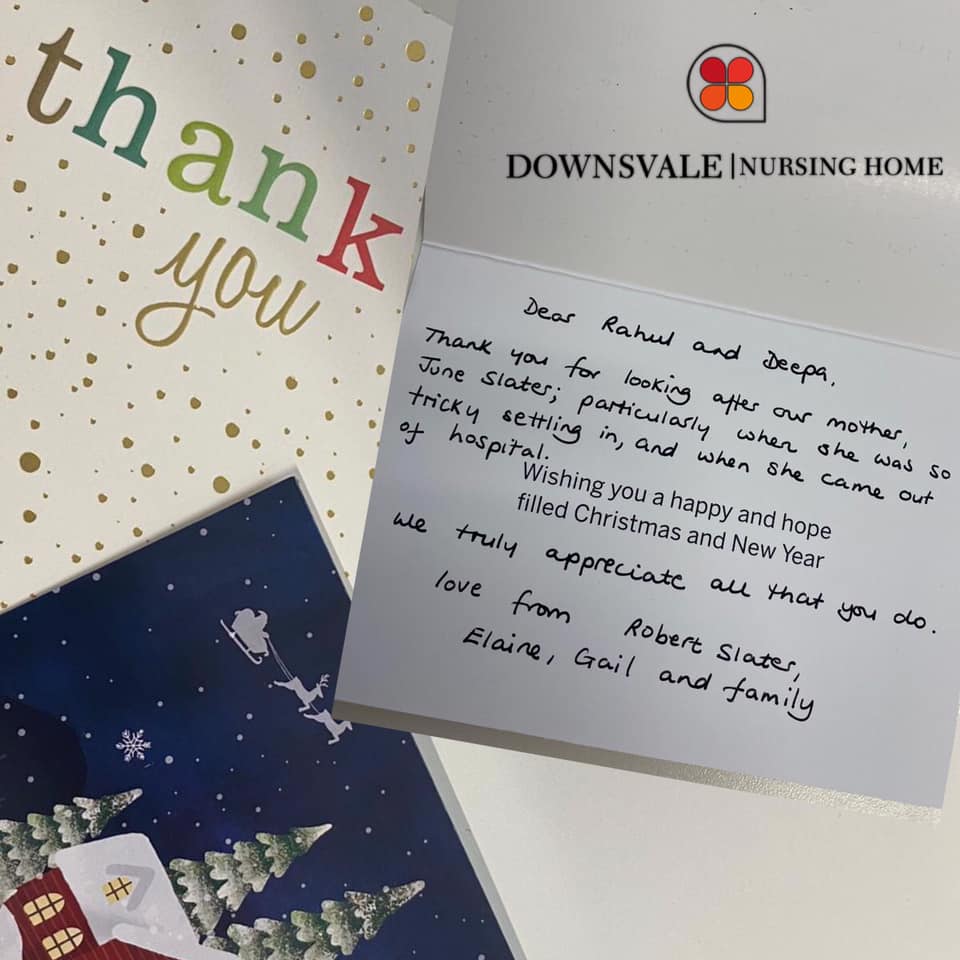 thank
you
DOWNSVALE | NURSING HOME
Dear Rahul and Deepa,
Thank you for looking after our mother,
June Slater; particularly when she was so
tricky settling in, and when she came out
of hospital.
Wishing you a happy and hope
filled Christmas and New Year
We truly appreciate all that you do.
love from Robert Slater,
Elaine, Gail and family